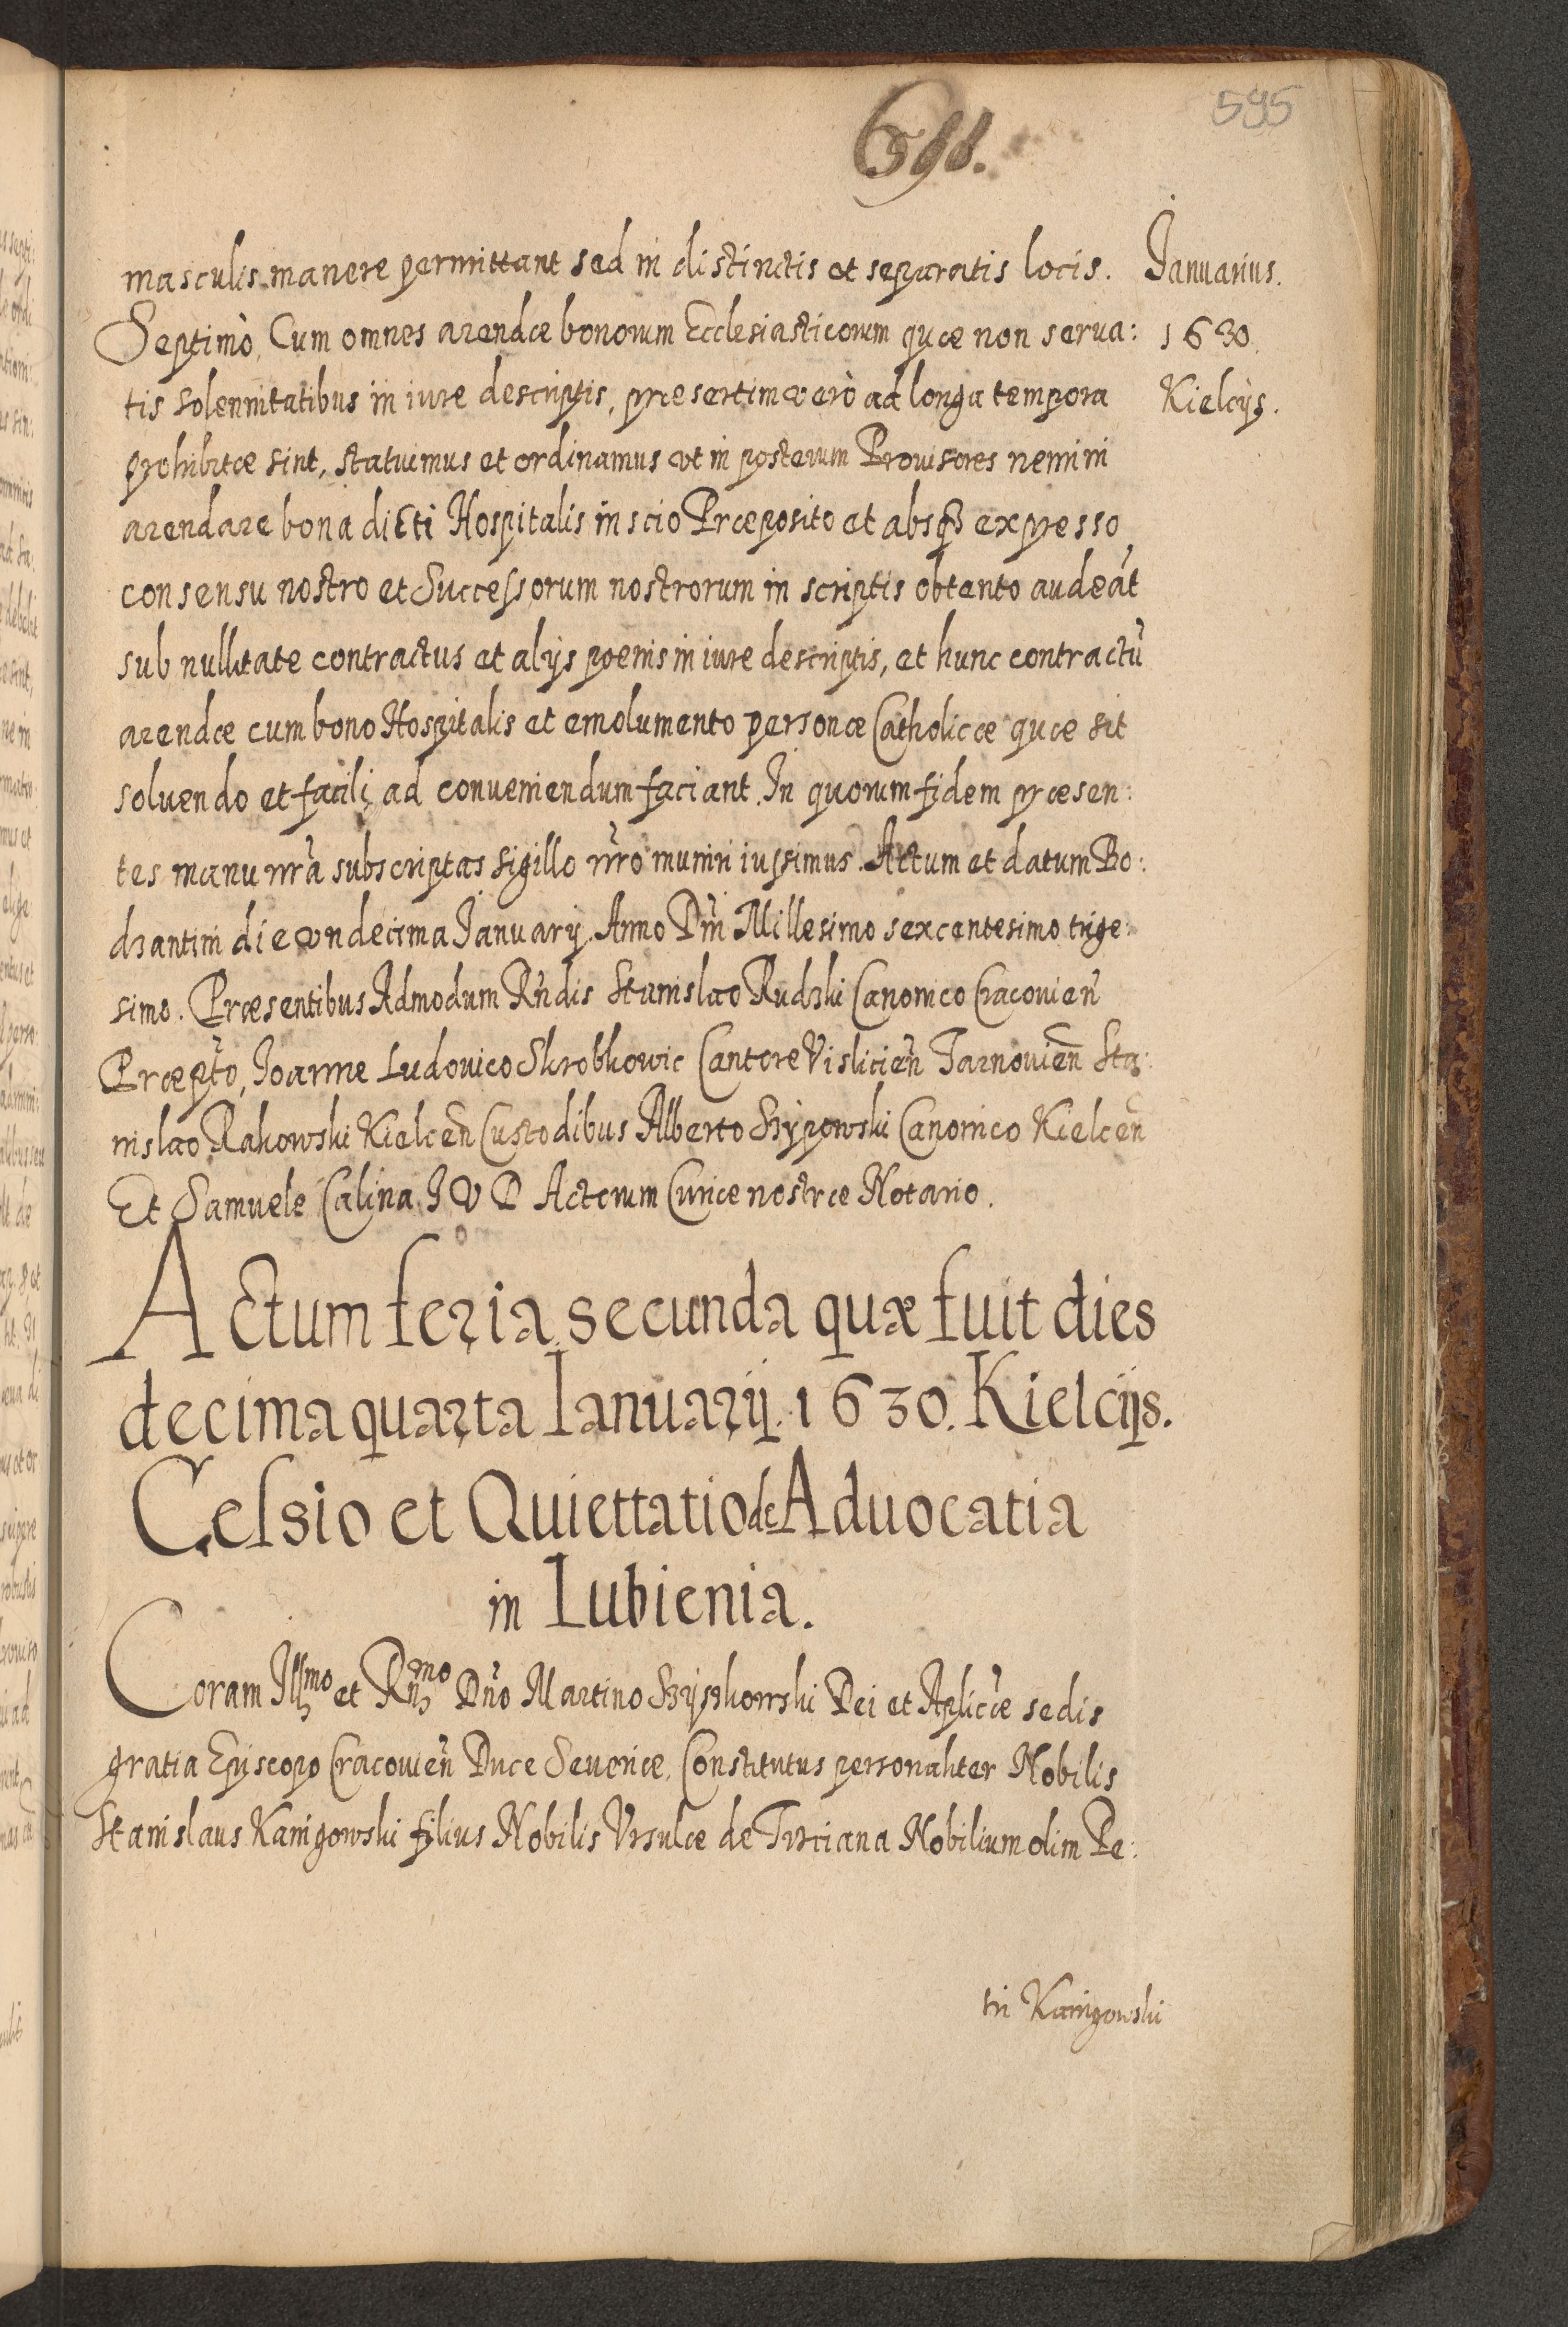 595
masculis manere permittant sed in distinctis et separatis locis.
Septimò, Cum omnes arendæ bonorum Ecclesiasticorum quæ non serua:
tis solennitatibus in iure descriptis, præsertim verò ad longa tempora
prohibitæ sint, statuimus et ordinamus vt in posterum Prouisores nemini
arendare bona dicti Hospitalis inscio Præposito et absqß expresso
consensu nostro et Successorum nostrorum in scriptis obtento audeat
sub nullitate contractus et alijs poenis in iure descriptis, et hunc contractū
arendæ cum bono Hospitalis et emolumento personæ Catholicæ quæ sit
soluendo et facilis ad conueniendum faciant. In quorum fidem præsen:
tes manu nrã subscriptas sigillo nrõ muniri iussimus. Actum et datum Bo:
dzantini die vndecima Ianuarij. Anno Dni Millesimo sexcentesimo trige:
simo. Præsentibus Admodum Rndis Stanislao Rudzki Canonico Cracouien̄
Præpto, Joanne Ludouico Skrobkowic Cantore Vislicien̄ Tarnouien̄ Sta:
nislao Rakowski Kielcen̄ Custodibus Alberto Szypowski Canonico Kielcen̄
Et Samuele Calina I V D Actorum Curiæ nostræ Notario.
Januarius.
1630.
Kielcijs.
Actum feria secunda quæ fuit dies
decima quarta Ianuarij. 1630. Kielcijs.
Cessio et Quiettatio de Aduocatia
in Lubienia.
Coram Illmo et Rñmo Dño Martino Szyszkowski Dei et Aplicæ sedis
gratia Episcopo Cracouien̄ Duce Seueriæ. Constitutus personaliter Nobilis
Stanislaus Kanigowski filius Nobilis Vrsulæ de Trzciana Nobilium olim Pe:
tri Kanigowski